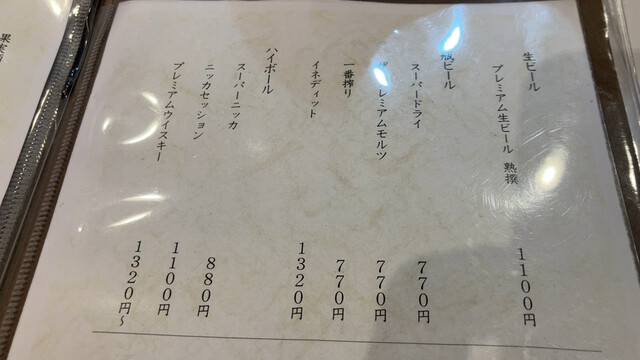 生ビール
プレミアム生ビール 熟撰
1100円
瓶ビール
スーパードライ
770円
プレミアムモルツ
770円
一番搾り
770円
イネディット
1320円
ハイボール
スーパーニッカ
880円
ニッカセッション
1100円
プレミアムウイスキー
1320円〜